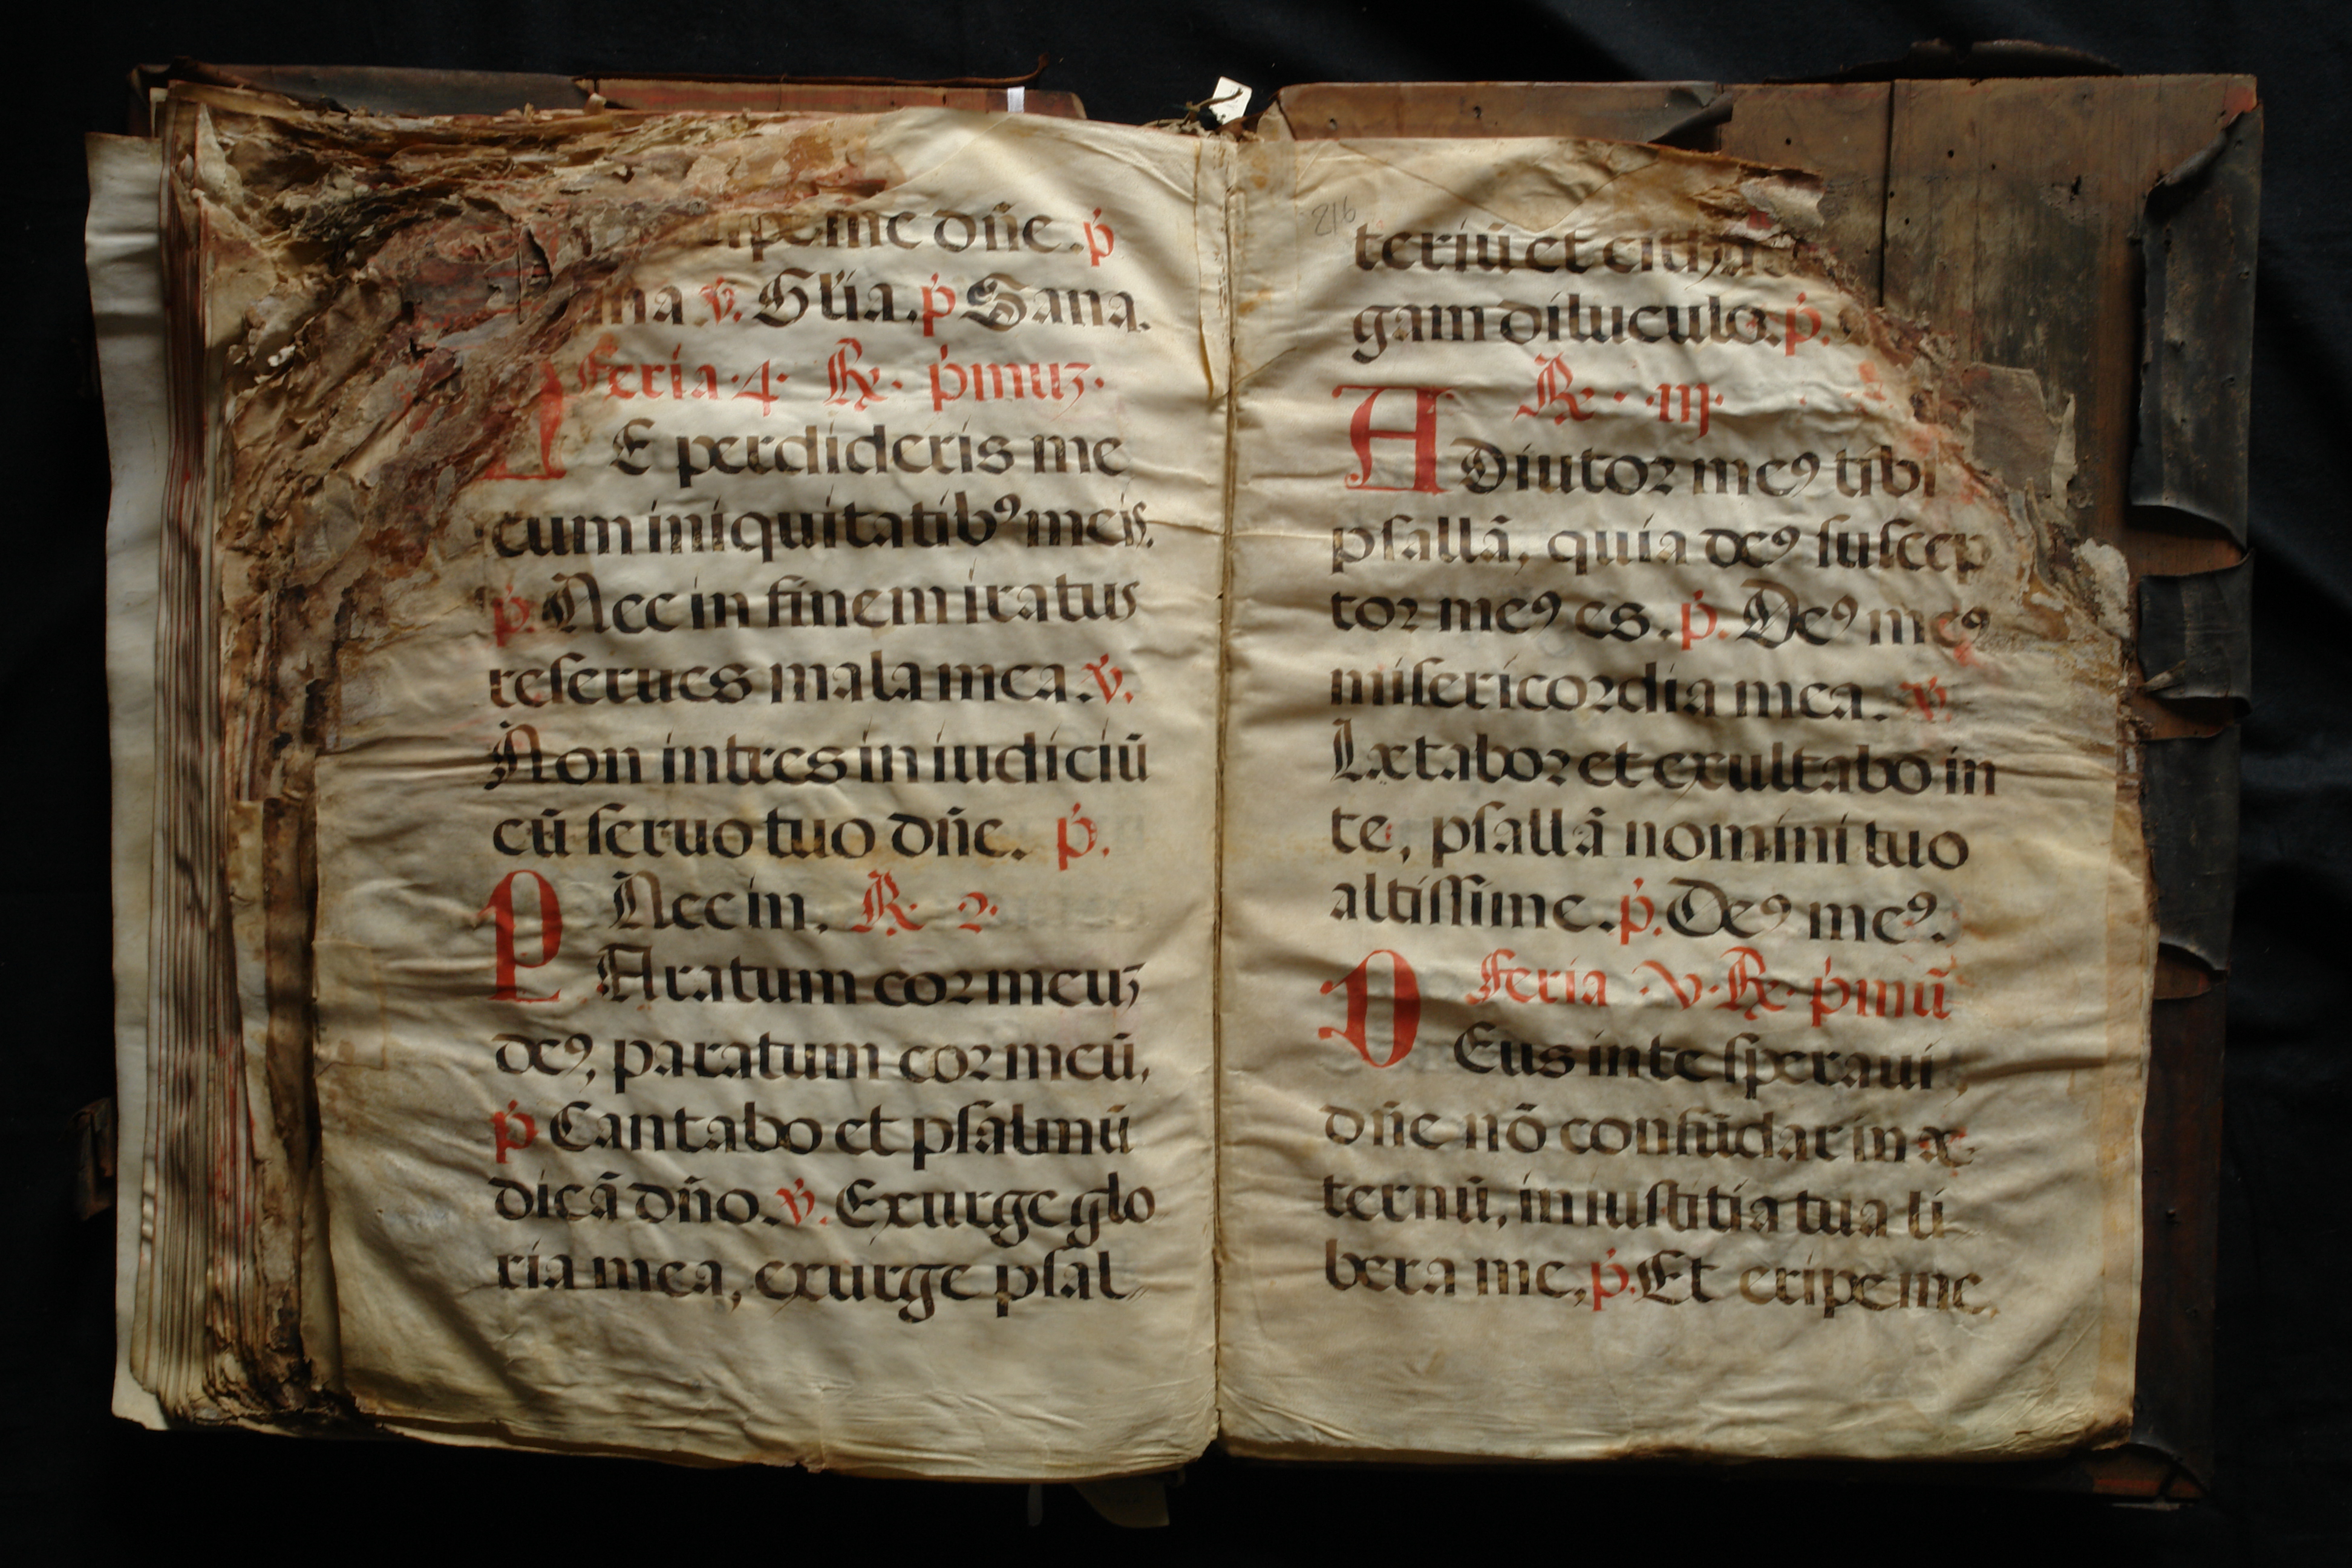 me dn̄e. ṗ
v̇. Gl̄ia. ṗ Sana.
Feria .4. R̷. ṗmuʒ.
E perdideris me
cum iniquitatibꝰ meis.
ṗ. Nec in finem iratus
reserues mala mea. v̇.
Non intres in iudiciū
cū seruo tuo dn̄e. ṗ.
Nec in. R̷. 2.
P Aratum cor meuʒ
deꝰ, paratum cor meū,
ṗ Cantabo et psalmū
dicā dn̄o. v̇. Exurge glo
ria mea, exurge psal-
216
teriū et
gam diluculo. ṗ.
R̷. .iij.
A Diutor meꝰ tibi
psallā, quia deꝰ suscep
tor meꝰ es. ṗ. Deꝰ meꝰ
misericordia mea. v̇.
Lætabor et exultabo in
te, psallā nomini tuo
altissime. ṗ. Deꝰ meꝰ.
Feria .v. R̷. ṗmū
D Eus in te speraui,
dn̄e nō confūdar in æ
ternū, in iustitia tua li
bera me, ṗ. Et eripe me,